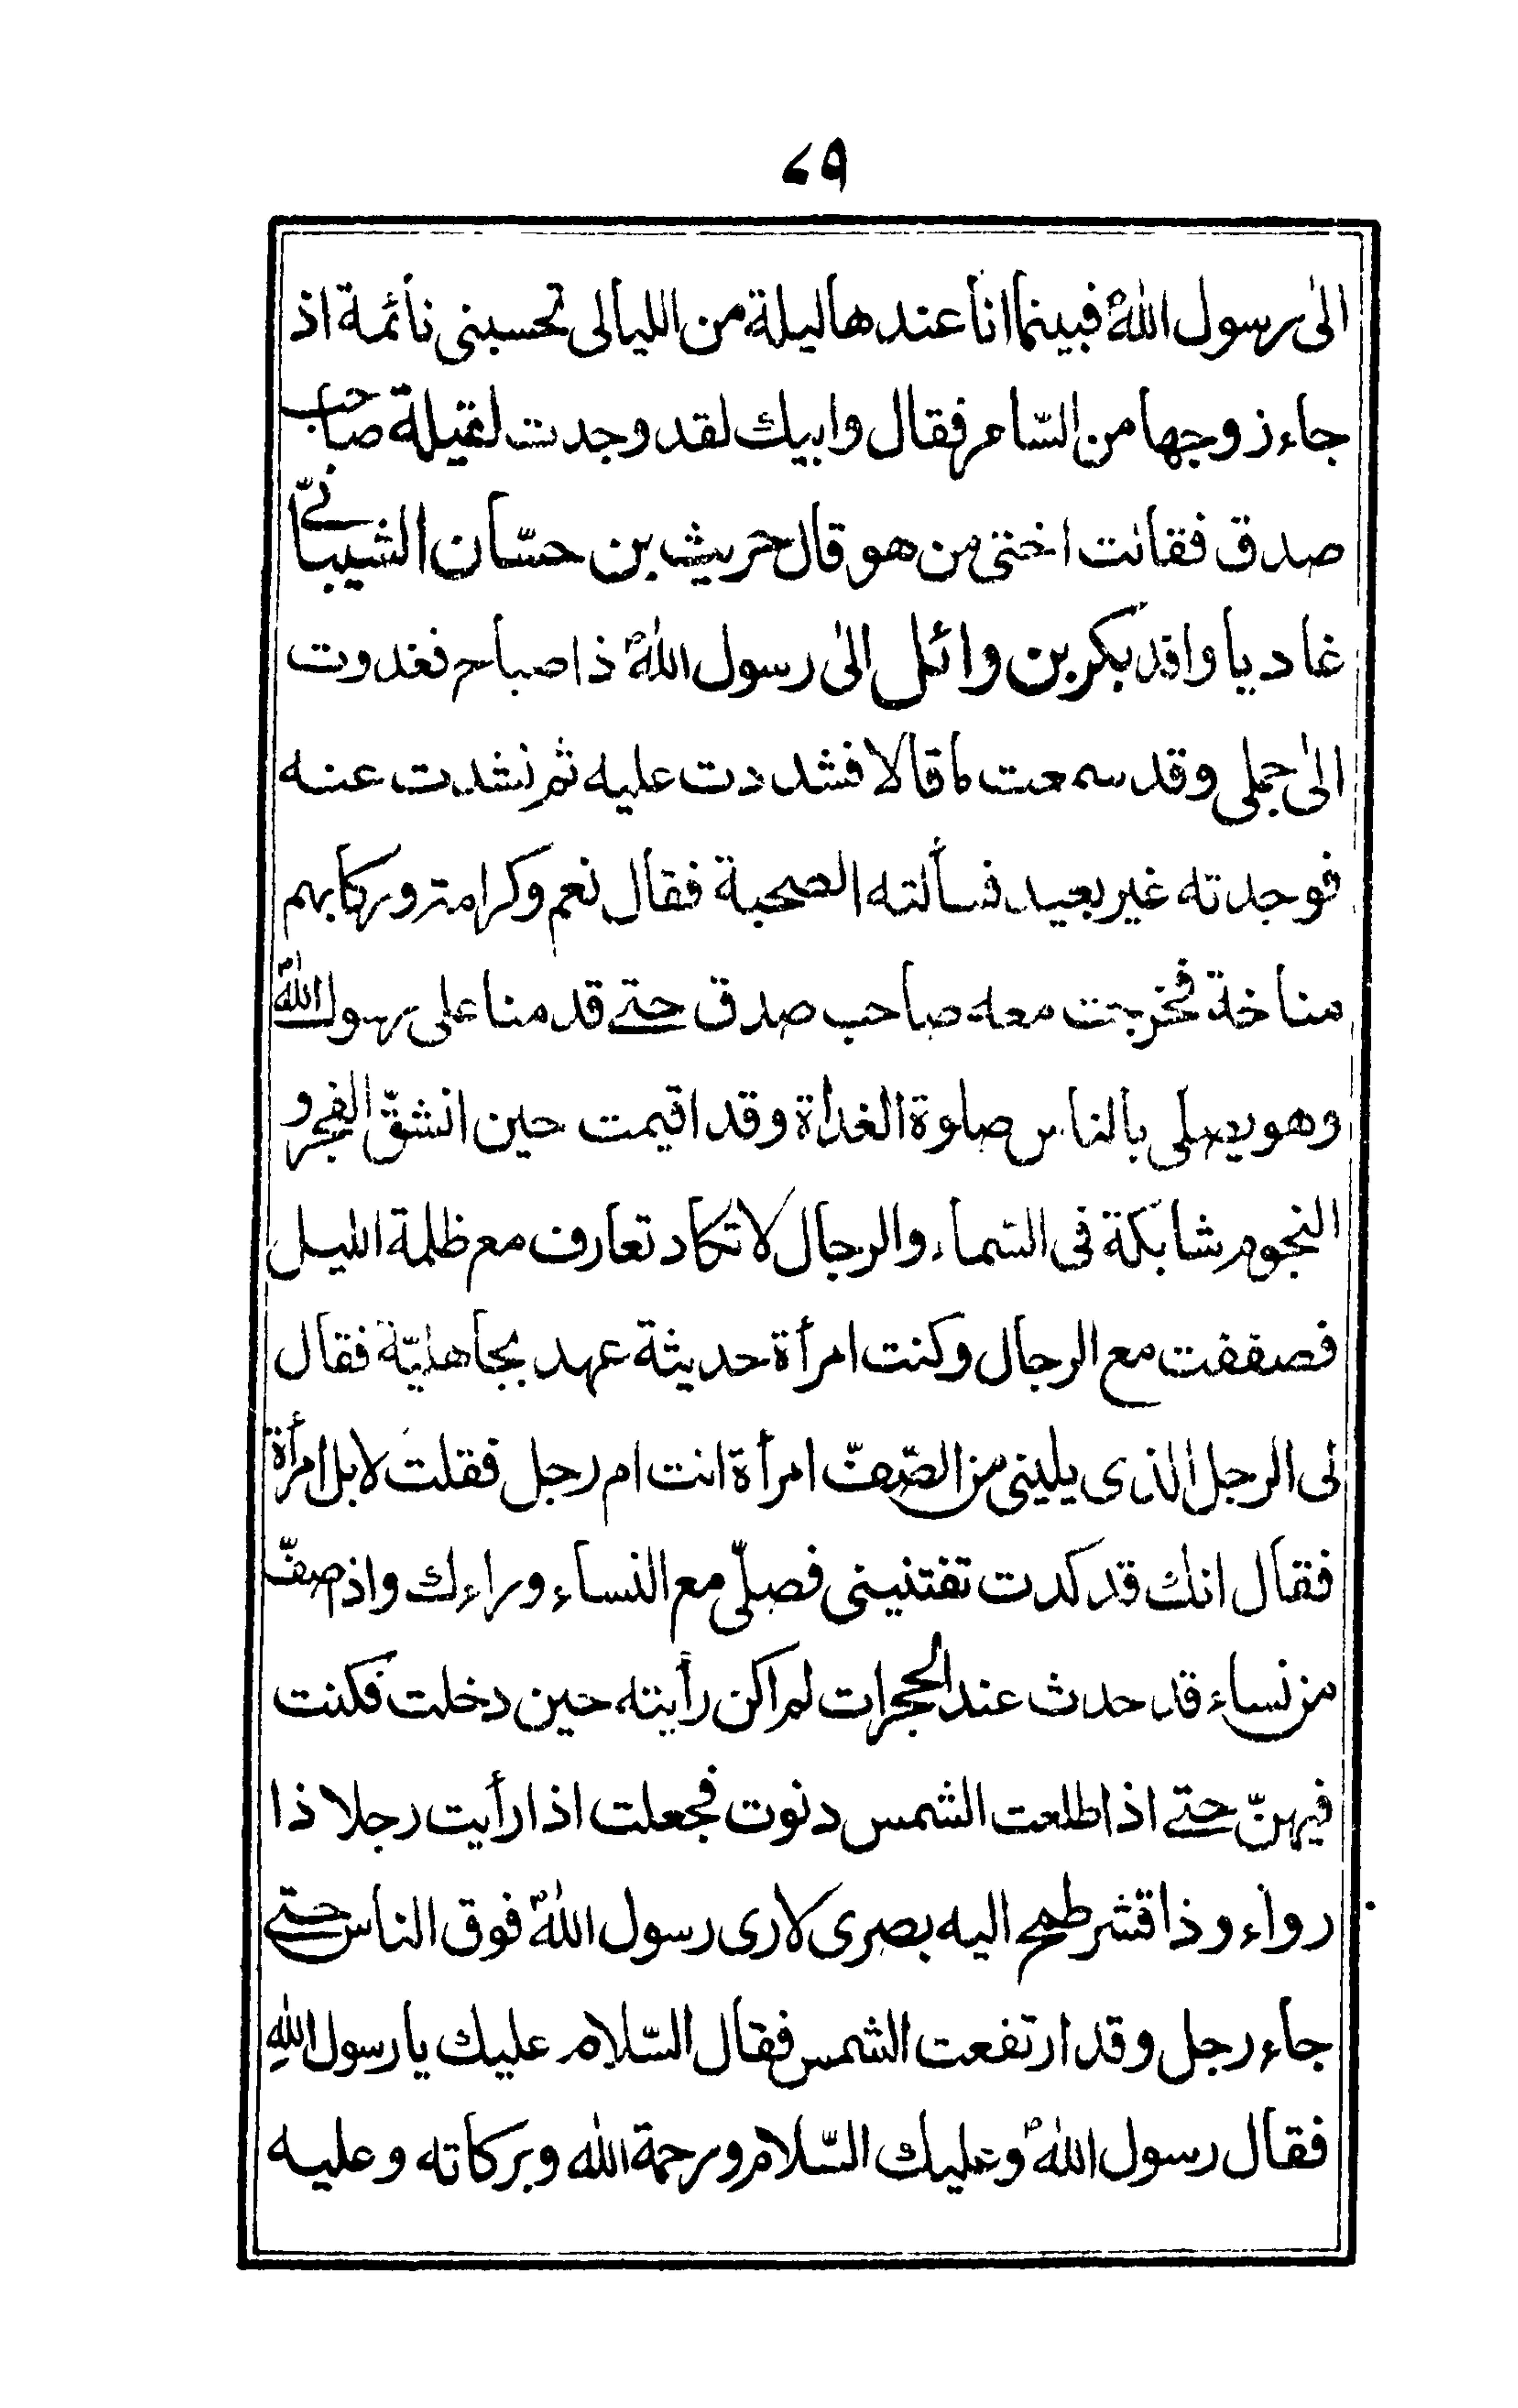 ٧٩
الىٰ رسول اللهؐ فبينما انا عندها ليلة من الليالى تحسبنى نائمة اذ
جاء زوجها من السّامر فقال وابيك لقد وجدت لقيلة صاحب
صدق فقالت اختى من هو قال حريث بن حسّان الشيبانىّ
غاديا وافد بكر بن وائل الىٰ رسول اللهؐ ذا صباح فغدوت
الىٰ جملى وقد سمعت ما قالا فشددت عليه ثم نشدت عنه
فوجدته غير بعيد فسألته الصحبة فقال نعم وكرامة وركابهم
مناخة فخرجت معه صاحب صدق حتے قدمنا على رسول اللهؐ
وهو يصلى بالناس صلوة الغداة وقد اقيمت حين انشقّ الفجر و
النجوم شابكة فى السّماء والرجال لا تكاد تعارف مع ظلمة الليل
فصففت مع الرجال وكنت امرأة حديثة عهد بجاهليّة فقال
لى الرجل الذى يلينى من الصّفّ امرأة انت ام رجل فقلت لا بل امرأة
فقال انك قد كدت تفتنينى فصلّى مع النساء وراءك واذا صفّ
من نساء قد حدث عند الحجرات لم اكن رأيته حين دخلت فكنت
فيهنّ حتے اذا طلعت الشمس دنوت فجعلت اذا رأيت رجلا ذا
رواء وذا قشر طمح اليه بصرى لارى رسول اللهؐ فوق الناس حتے
جاء رجل وقد ارتفعت الشمس فقال السّلام عليك يا رسول اللهِ
فقال رسول اللهؐ وعليك السّلام ورحمة الله وبركاته وعليه